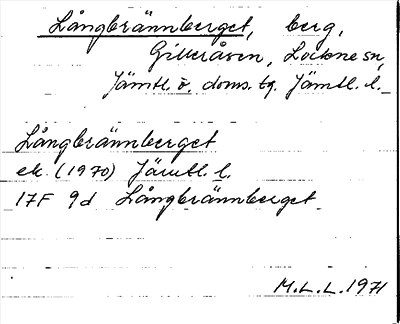 Långbrännberget, berg,
Gilleråsen, Lockne sn,
Jämtl. ö. doms. tg. Jämtl. l.
Långbrännberget
ek. (1970) Jämtl. l.
17F 9d Långbrännberget
M.L.L. 1971